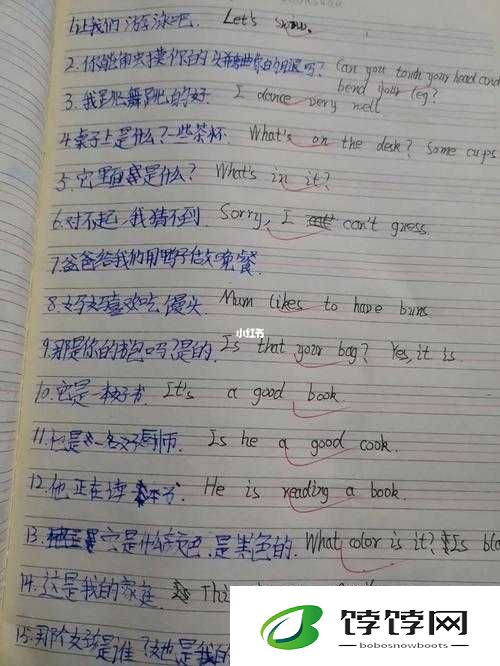 1.让我们游泳吧. Let's swim.
2.你能触摸你的头并弯曲你的腿吗? Can you touch your head and
bend your leg?
3.我跳舞跳的好. I dance very well
4.桌子上是什么?一些茶杯. What's on the desk? Some cups
5.它里面是什么? What's in it?
6.对不起,我猜不到. Sorry, I can't guess.
7.爸爸给我们用鸭子做晚餐.
8.妈妈喜欢吃馒头. Mum likes to have buns.
小红书
9.那是你的书包吗?是的. Is that your bag? Yes, it is.
10.它是一本好书. It's a good book.
11.他是一名好厨师. Is he a good cook.
12.他正在读书. He is reading a book.
13.它是什么颜色.是黑色的. What color is it? Is
14.这是我的家庭.
15.那个女孩是谁?她也是我的
饽饽网
bobosnowboots.com